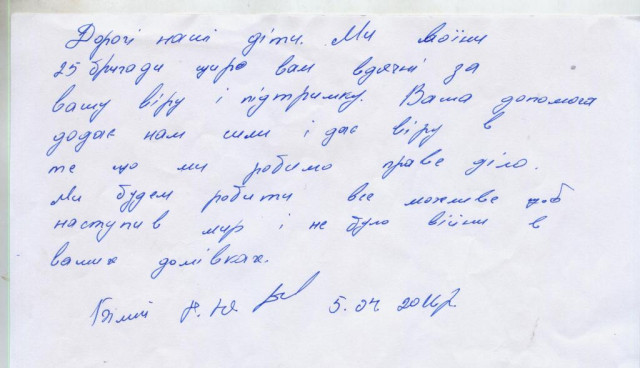 Дорогі наші діти. Ми воїни
25 бригади щиро вам вдячні за
вашу віру і підтримку. Ваша допомога
додає нам сили і дає віру в
те що ми робимо праве діло.
Ми будем робити все можливе щоб
наступив мир і не було війни в
ваших домівках.
Н.Ю. 5.04